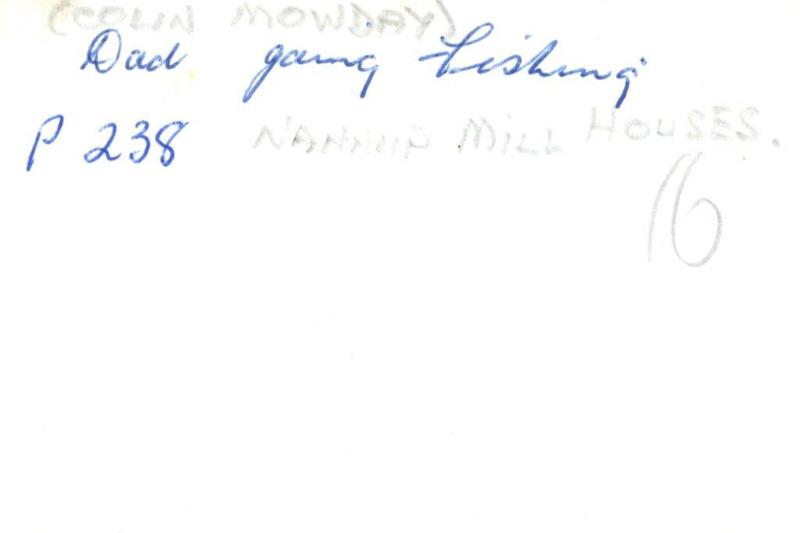 (COLIN MOWDAY)
Dad going fishing
P 238 NANNUP MILL HOUSES.
16